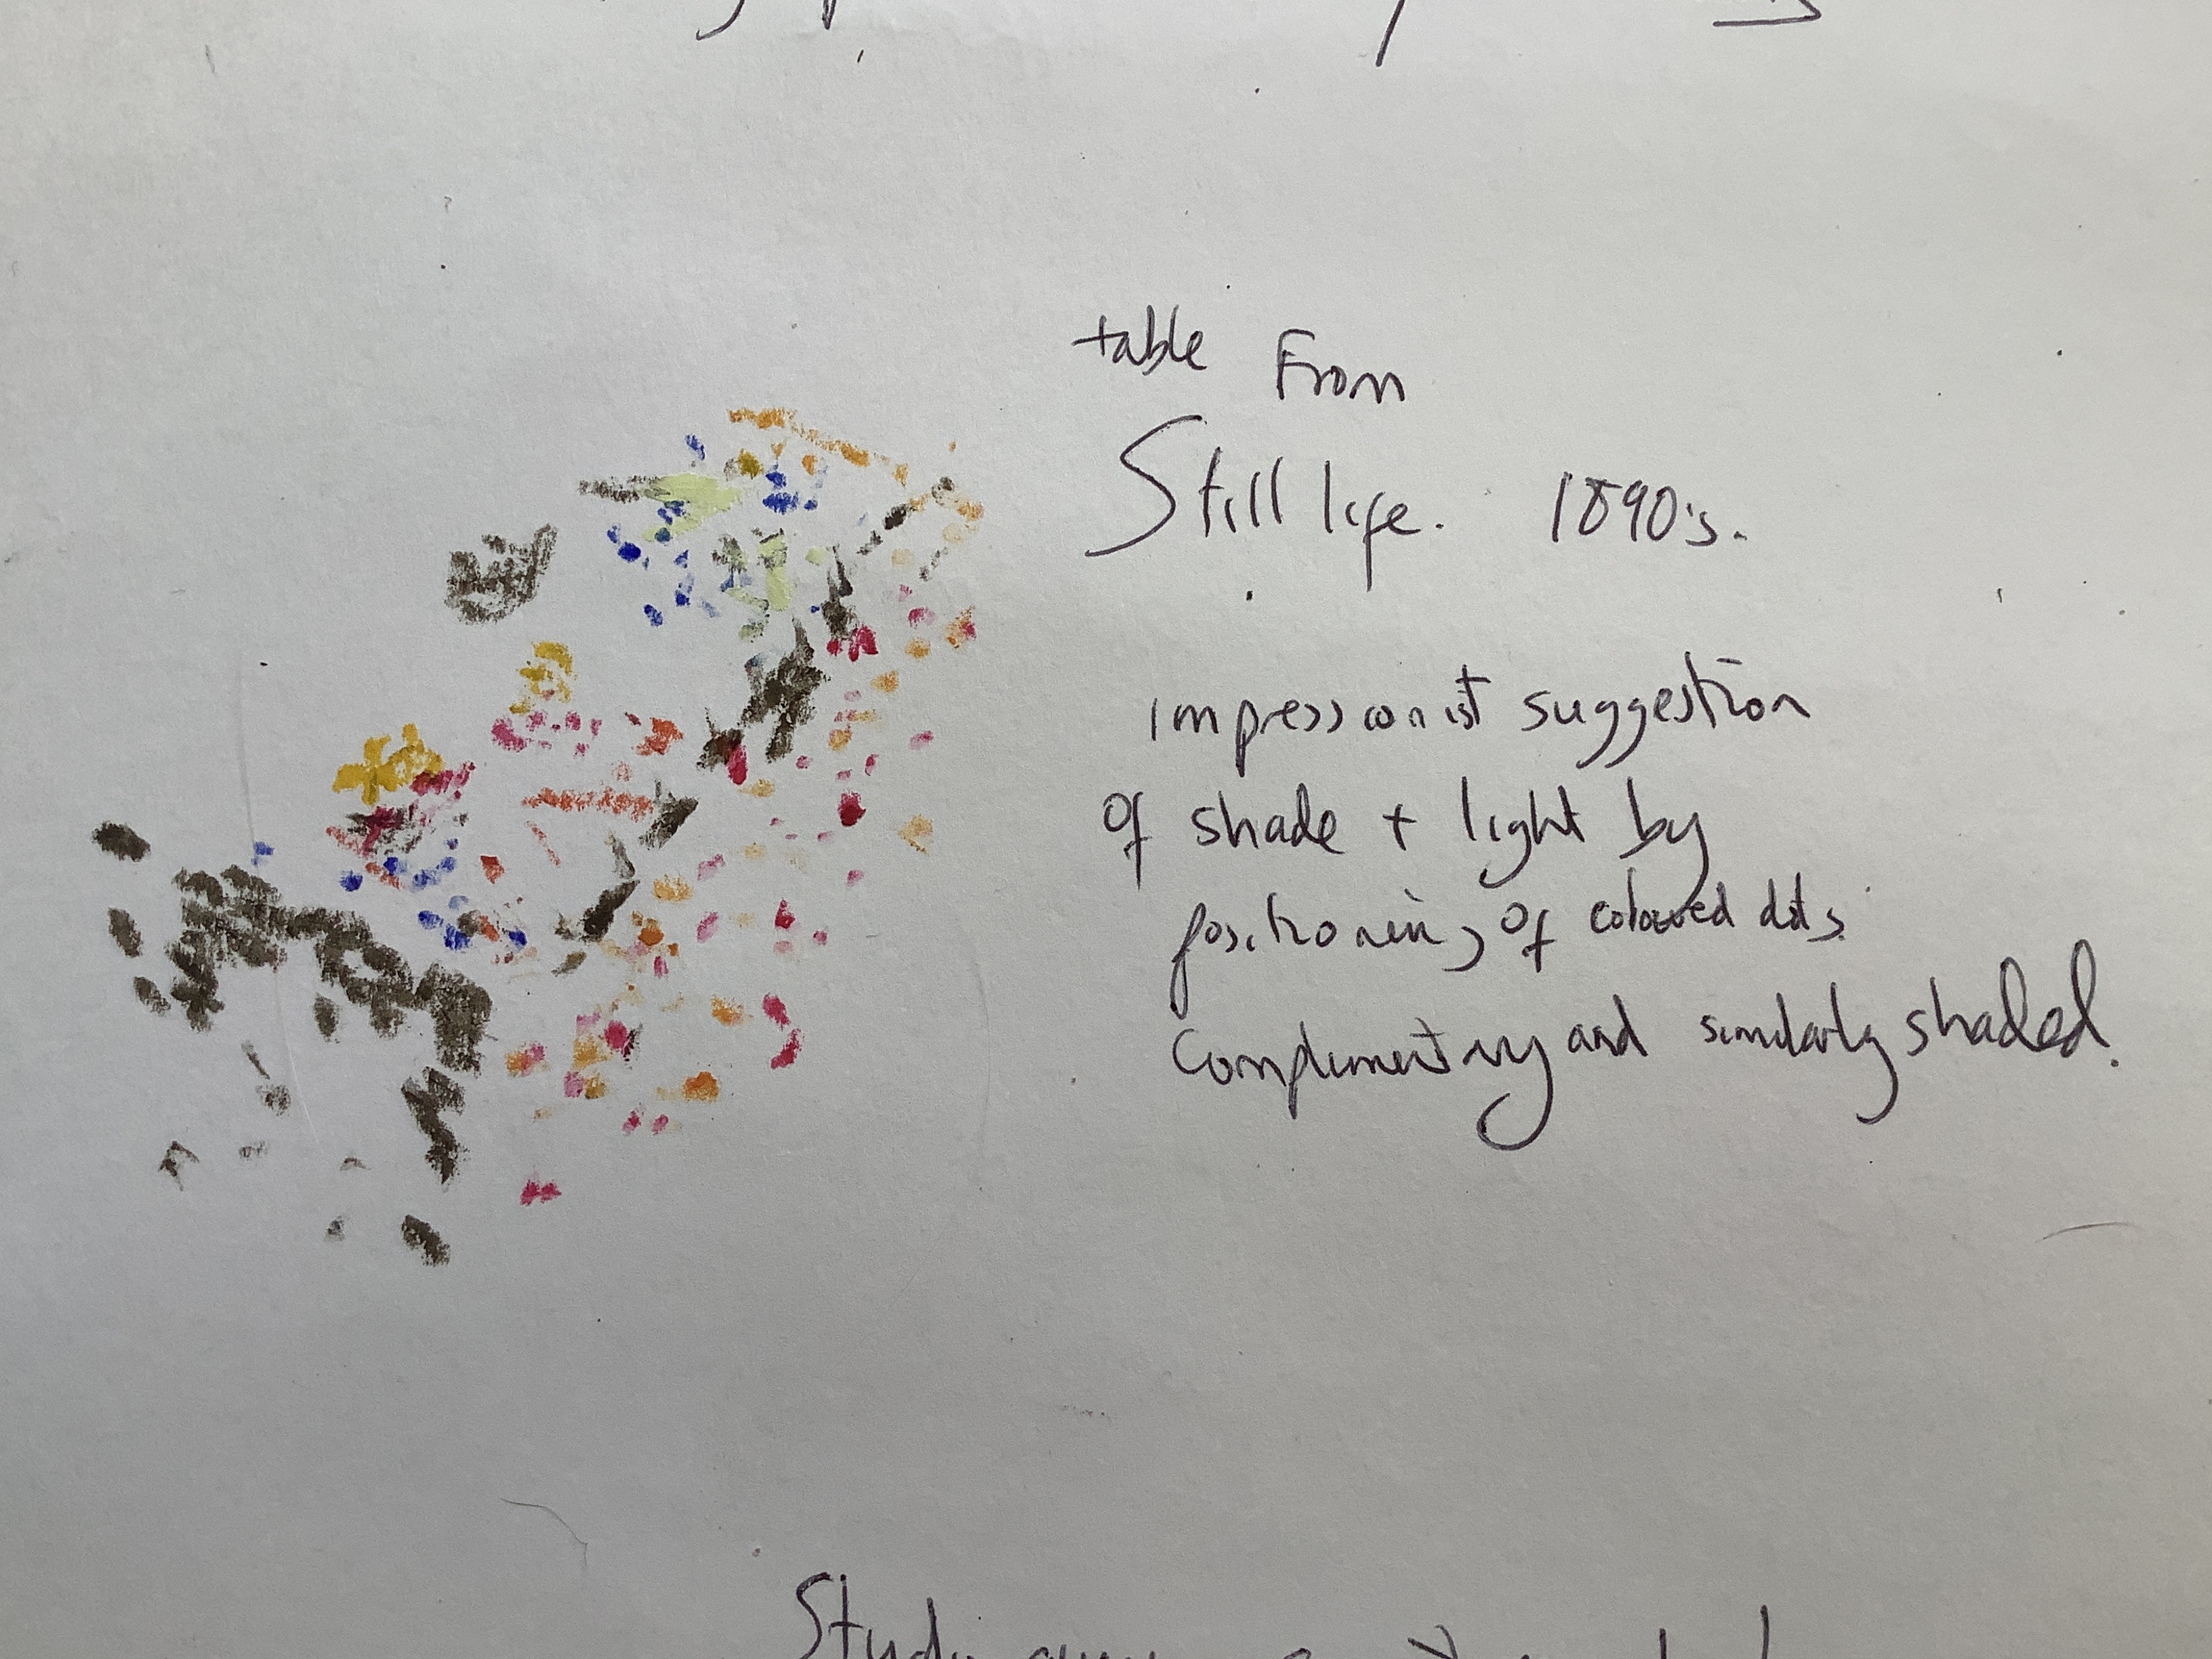 table From
Still life. 1890's.
impressionist suggestion
of shade + light by
positioning of coloured dots.
Complementary and similarly shaded.